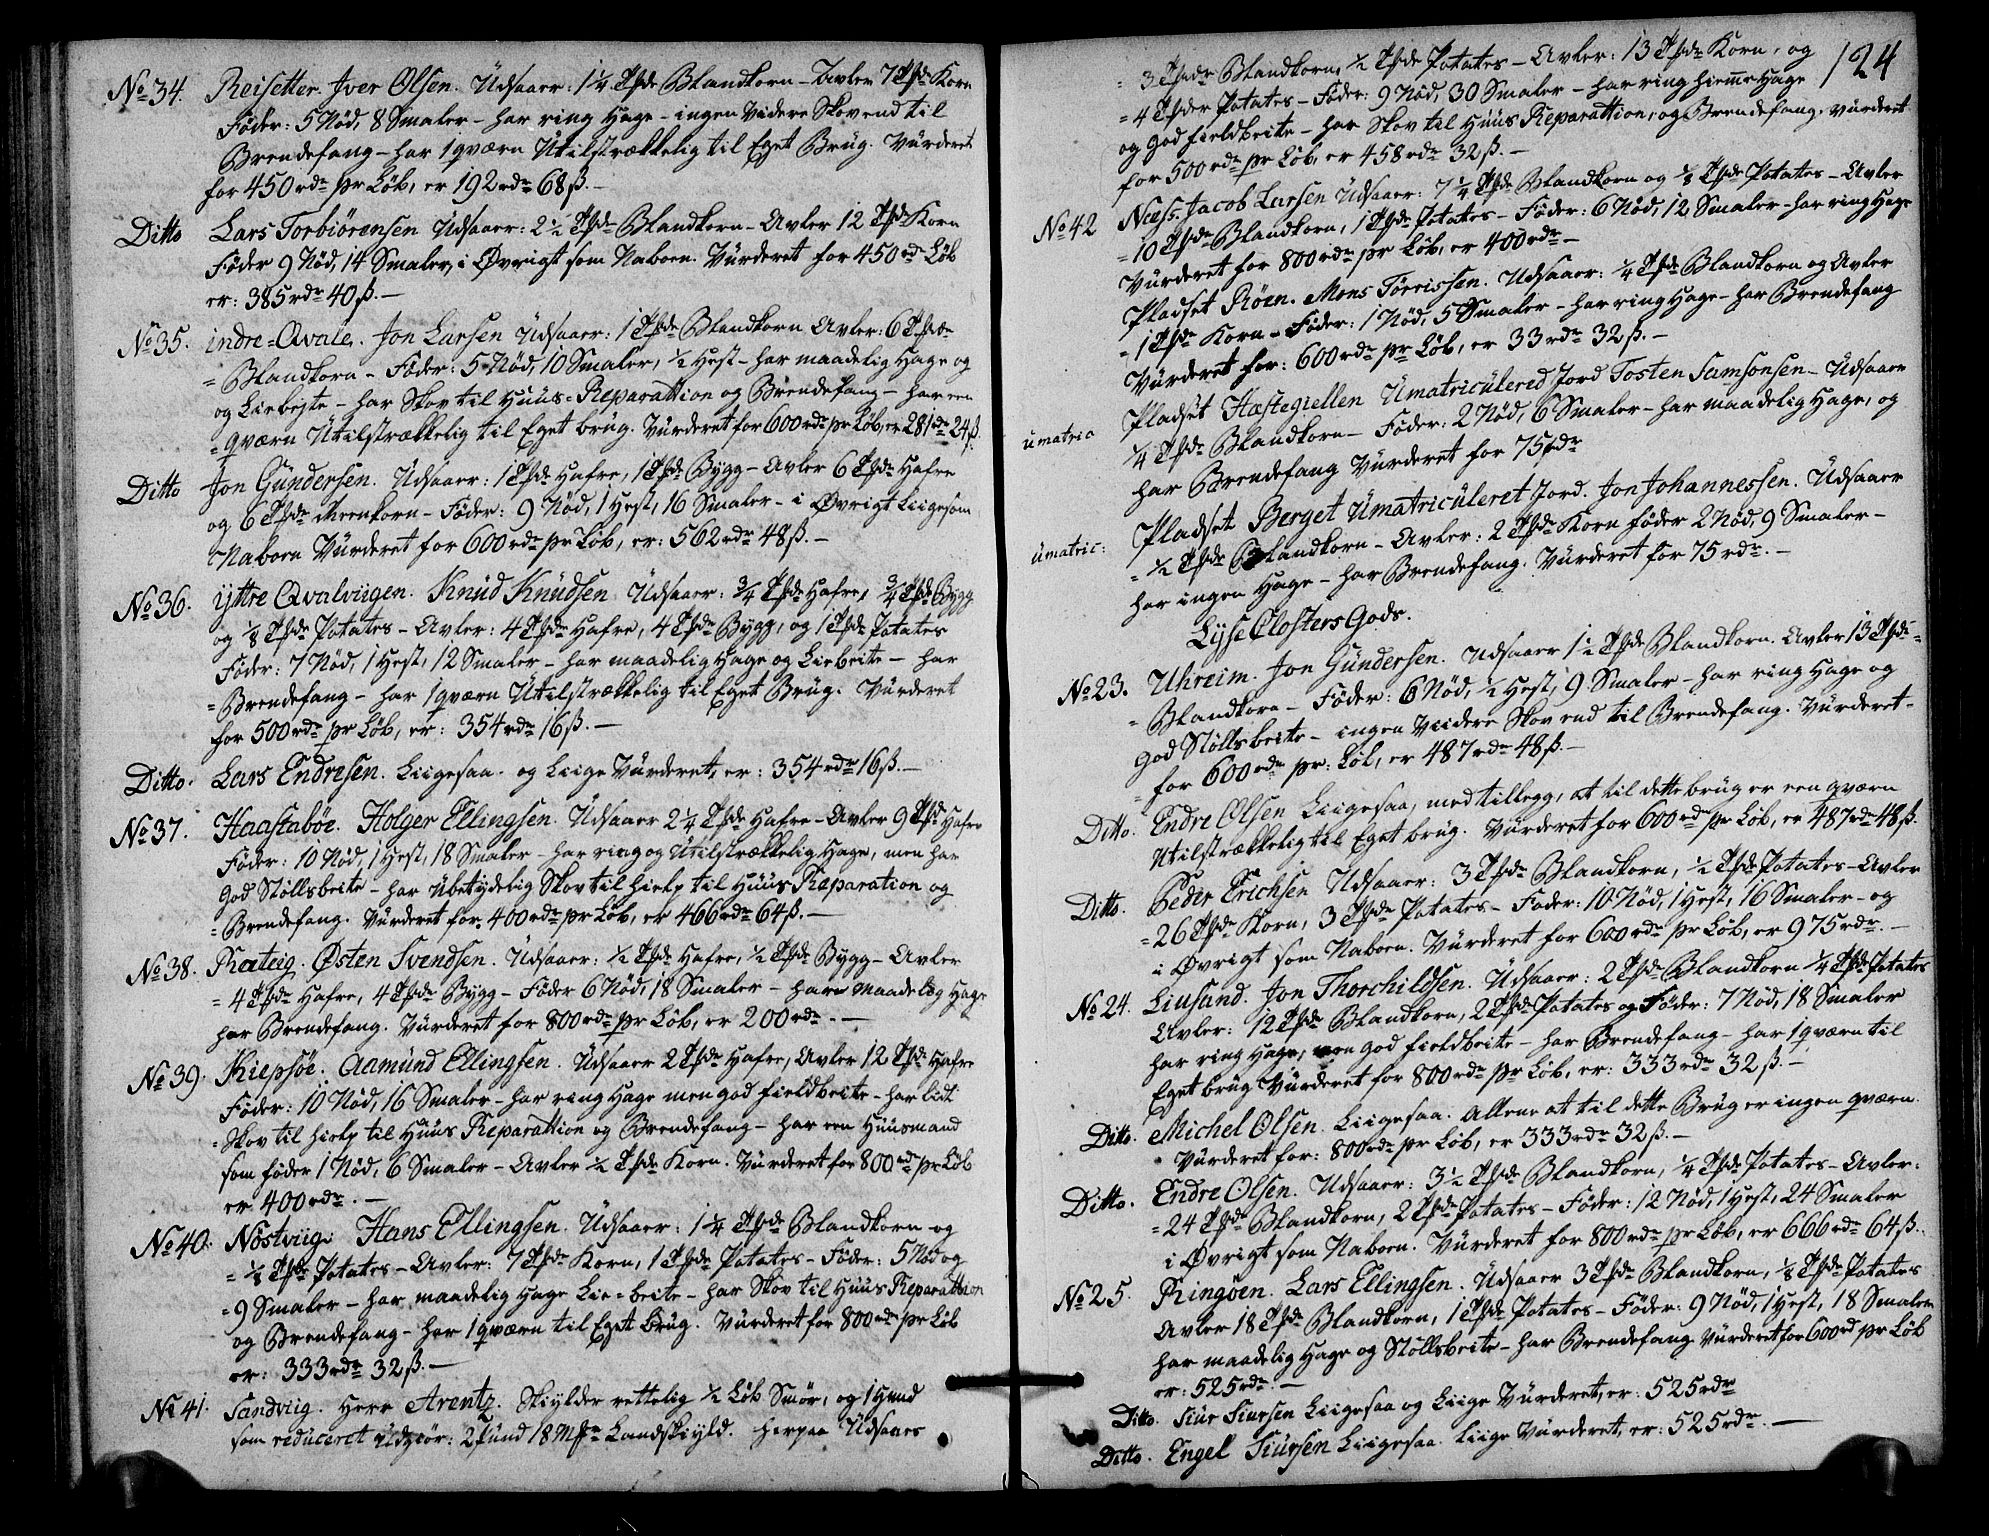 No 34. Reisetter. Iver Olsen. Udsaaer: 1 1/4 Tønde Blandkorn – Avler 7 Tønde Korn
Føder: 5 Nød, 8 Smaler – har ring Hage – ingen videre Skov end til
Brendefang – har 1 qværn Utilstrækkelig til Eget Brug. Vurderet
for 450 rdr pr Løb, er 192 rdr 68 ß. –
Ditto Lars Torbiørensen Udsaaer: 2 1/2 Tønde Blandkorn – Avler 12 Tønde Korn
Føder 9 Nød, 14 Smaler, i Øvrigt som Naboen. Vurderet for 450 rd Løb
er: 385 rdr 40 ß. –
No 35. indre = Qvale. Jon Larsen Udsaaer: 1 Tønde Blandkorn Avler: 6 Tønde
= Blandkorn – Føder: 5 Nød, 10 Smaler, 1/2 Hest – har maadelig Hage og
og Liebejte – har Skov til Huus = Reparattion og Brendefang – har een
= qværn Utilstrækkelig til Eget brug. Vurderet for 600 rdr pr Løb, er 281 rdr 24 ß.
Ditto Jon Gundersen. Udsaaer: 1 Tønde Hafre, 1 Tønde Bygg – Avler 6 Tønde Hafre
og 6 Tønde Meenkorn – Føder: 9 Nød, 1 Hest, 16 Smaler – i Øvrigt Liigesom
Naboen Vurderet for 600 rdr pr Løb, er: 562 rdr 48 ß. –
No 36. ÿttre Qvalviigen. Knud Knudsen. Udsaaer: 3/4 Tønde Hafre, 3/4 Tønde Bygg
og 1/8 Tønde Potates – Avler: 4 Tønde Hafre, 4 Tønde Bygg, og 1 Tønde Potates
Føder: 7 Nød, 1 Hest, 12 Smaler – har maadelig Hage og Liebeite – har
= Brendefang – har 1 qværn Utilstrækkelig til Eget Brug. Vurderet
for 500 rdr pr Løb, er: 354 rdr 16 ß. –
Ditto. Lars Endresen. Liigesaa. og Liige Vurderet, er: 354 rdr 16 ß. –
No 37. Haastabøe. Holger Ellingsen. Udsaaer 2 1/4 Tønde Hafre – Avler 9 Tønde Hafre
Føder: 10 Nød, 1 Hest, 18 Smaler – har ring og Utilstrækkelig Hage, men har
God Støllsbeite – har Ubetydelig Skov til hielp til Huus Reparation og
= Brendefang. Vurderet for 400 rdr pr Løb, er 466 rdr 64 ß. –
No 38. Rateig. Østen Svendsen. Udsaaer: 1/2 Tønde Hafre, 1/2 Tønde Bygg – Avler
= 4 Tønde Hafre, 4 Tønde Bygg – Føder 6 Nød, 18 Smaler – have Maadelig Hage
har Brendefang. Vurderet for 800 rdr pr Løb, er 200 rdr. –
No 39. Kiepsøe. Aamund Ellingsen. Udsaaer 2 Tønde Hafre, Avler 12 Tønde Hafre
Føder: 10 Nød, 16 Smaler – har ring Hage men god fieldbeite – har lidt
= Skov til hielp til Huus Reparattion og Brendefang – har een Huusmand
som føder 1 Nød, 6 Smaler – Avler 1/2 Tønde Korn. Vurderet for 800 rdr pr Løb
er 400 rdr. –
No 40. Nöstviig. Hans Ellingsen. Udsaaer: 1 1/4 Tønde Blandkorn og
= 1/8 Tønde Potates – Avler: 7 Tønde Korn, 1 Tønde Potates – Føder: 5 Nød og
= 9 Smaler – har maadelig Hage Lie = beite – har Skov til Huus Reparattion
og Brendefang – har 1 qværn til Eget Brug. Vurderet for 800 rd pr Løb
er: 333 rdr 32 ß. –
No 41. Sandviig. Herr Arentz. Skylder rettelig 1/2 Løb Smør, og 1 Hund
som reduceret Udgiør: 2 Pund 18 Mkr Landskyld. herpaa Udsaaes
124
= 3 Tønde Blandkorn, 1/2 Tønde Potates – Avler: 13 Tønde Korn, og
= 4 Tønder Potates – Føder: 9 Nød, 30 Smaler – har ring hiemme Hage
og God fieldbeite – har Skov til Huus Reparattion, og Brendefang. vurderet
for 500 rdr pr Løb, er 458 rdr 32 ß. –
No 42 Næss. Jacob Larsen Udsaaer: 7 1/4 Tønde Blandkorn og 1/8 Tønde Potates – Avler
= 10 Tønde Blandkorn, 1 Tønde Potates – Føder: 6 Nød, 12 Smaler – har ring Hage
Vurderet for 800 rdr pr Løb, er 400 rdr –
Pladset Røen. Mons Torrissen. Udsaaer: 1/4 Tønde Blandkorn og Avler
= 1 Tønde Korn – Føder: 1 Nød, 5 Smaler – har ring Hage – har Brendefang
Vurderet for: 600 rdr pr Løb, er 33 rdr 32 ß. –
Pladset Hæstegiellen Umatriculered Jord Tosten Samsonsen – Udsaaer
umatric 1/4 Tønde Blandkorn – Føder: 2 Nød, 6 Smaler – har maadelig Hage, og
har Brendefang Vurderet for 75 rdr
Pladset Berget Umatriculeret Jord. Jon Johannessen. Udsaaer
umatric: = 1/2 Tønde Blandkorn – Avler: 2 Tønde Korn føder 2 Nød, 9 Smaler –
har ingen Hage – har Brendefang. Vurderet for 75 rdr. –
Lyse Closters Gods.
No 23. Uhreim. Jon Gundersen. Udsaaer 1 1/2 Tønde Blandkorn. Avler 13 Tønde =
= Blandkorn – Føder: 6 Nød, 1/2 Hest, 9 Smaler – har ring Hage og
God Støllsbeite – ingen viidere Skov end til Brendefang. Vurderet =
= for 600 rdr pr: Løb, er 487 rdr 48 ß. –
Ditto. Endre Olsen Liigesaa, med tillegg, at til dette brug er een qværn
Utilstrækkelig til Eget brug. Vurderet for 600 rdr pr Løb, er 487 rdr 48 ß.
Ditto. Peder Erichsen Udsaaer: 3 Tønde Blandkorn, 1/2 Tønde Potates – Avler
= 26 Tønde Korn, 3 Tønde Potates – Føder: 10 Nød, 1 Hest, 16 Smaler – og
i Øvrigt som Naboen. Vurderet for 600 rdr pr Løb, er 975 rdr. –
No 24. Liusand. Jon Thorchildsen. Udsaaer: 2 Tønde Blandkorn 1/4 Tønde Potates
Avler: 12 Tønde Blandkorn, 2 Tønde Potates og Føder: 7 Nød, 18 Smaler
har ring Hage, men god fieldbeite – har Brendefang – har 1 qværn til
Eget brug Vurderet for 800 rdr pr Løb, er: 333 rdr 32 ß. –
Ditto. Michel Olsen. Liigesaa. Allene at til dette Brug er ingen qværn.
Vurderet for: 800 rdr pr Løb, er 333 rdr 32 ß. –
Ditto. Endre Olsen. Udsaaer: 3 1/2 Tønde Blandkorn, 1/4 Tønde Potates – Avler:
= 24 Tønde Blandkorn, 2 Tønde Potates – Føder: 12 Nød, 1 Hest, 24 Smaler
i Øvrigt som Naboen. Vurderet for 800 rdr pr Løb, er 666 rdr 64 ß.
No 25. Ringøen. Lars Ellingsen. Udsaaer 3 Tønde Blandkorn, 1/8 Tønde Potates
Avler 18 Tønde Blandkorn, 1 Tønde Potates – Føder: 9 Nød, 1 Hest, 18 Smaler
har maadelig Hage og Støllsbeite – har Brendefang Vurderet for 600 rd pr Løb
er: 525 rdr. –
Ditto. Siur Siursen Liigesaa og Liige Vurderet, er: 525 rdr
Ditto. Engel Siursen Liigesaa. Liige Vurderet, er: 525 rdr. –